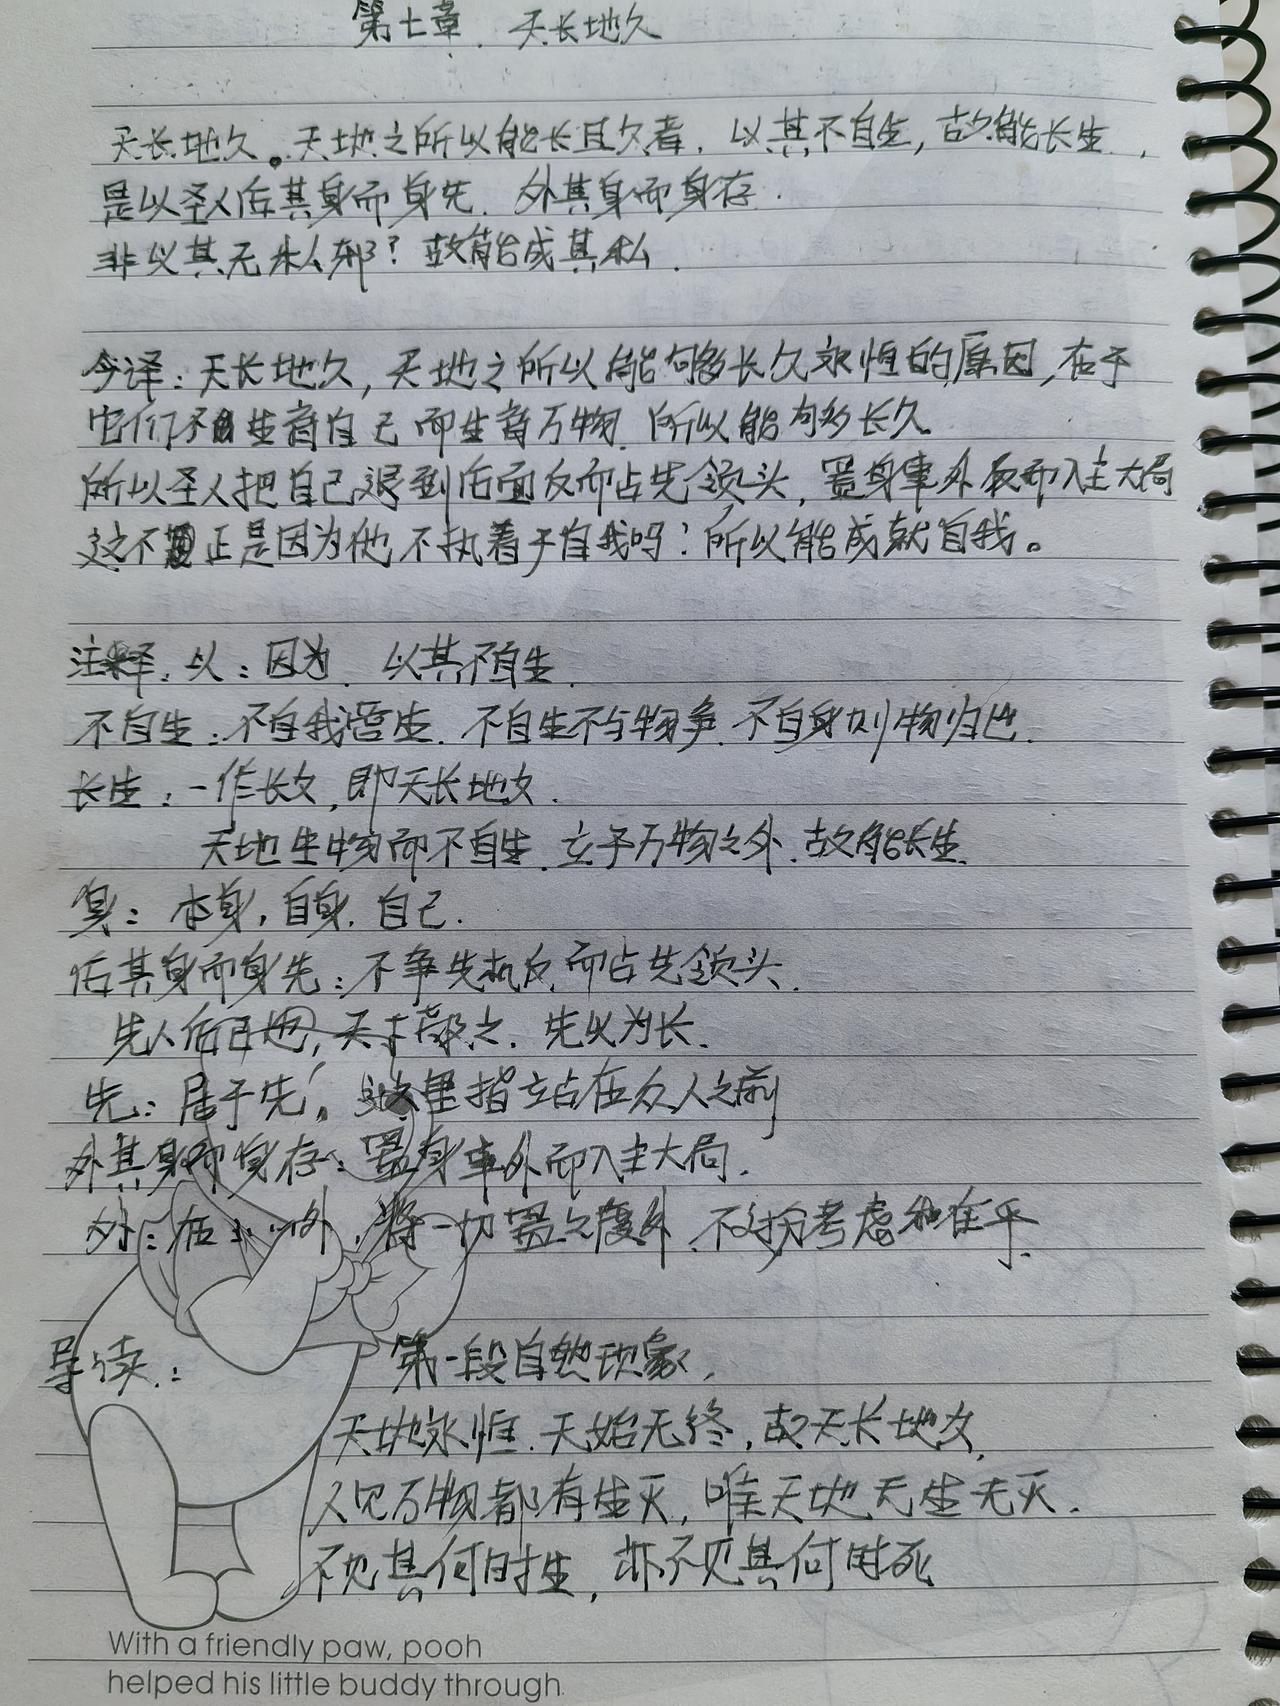 第七章. 天长地久
天长地久。天地之所以能长且久者, 以其不自生, 故能长生,
是以圣人后其身而身先. 外其身而身存.
非以其无私邪? 故能成其私.
今译: 天长地久, 天地之所以能够长久永恒的原因, 在于
它们不生育自己而生育万物. 所以能够长久
所以圣人把自己退到后面反而占先领头, 置身事外反而入主大局
这不正是因为他不执着于自我吗? 所以能成就自我。
注释. 以: 因为. 以其不自生.
不自生: 不自我营生. 不自生不与物争. 不自身则物归也.
长生: 一作长久, 即天长地久.
天地生物而不自生. 立于万物之外. 故能长生.
身: 本身, 自身. 自己.
后其身而身先: 不争先机反而占先领头.
先人后己也, 天下敬之. 先以为长.
先: 居于先, 这里指立占在众人之前
外其身而身存: 置身事外而入主大局.
外: 在……外, 将一切置之度外. 不必考虑和在乎.
导读: 第一段自然现象,
天地永恒. 无始无终, 故天长地久.
人见万物都有生灭, 唯天地无生无灭.
不见其何时生, 亦不见其何时死
With a friendly paw, pooh
helped his little buddy through